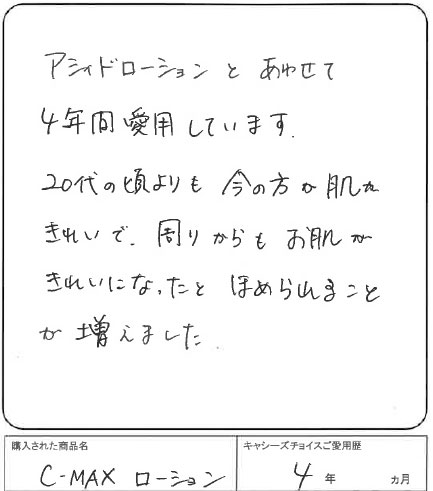 アシィドローションと あわせて
4年間愛用しています.
20代の頃よりも 今の方が肌が
きれいで、周りからも お肌が
きれいになったと ほめられること
が 増えました.
購入された商品名
キャシーズチョイスご愛用歴
C-MAX ローション
4 年 ヵ月